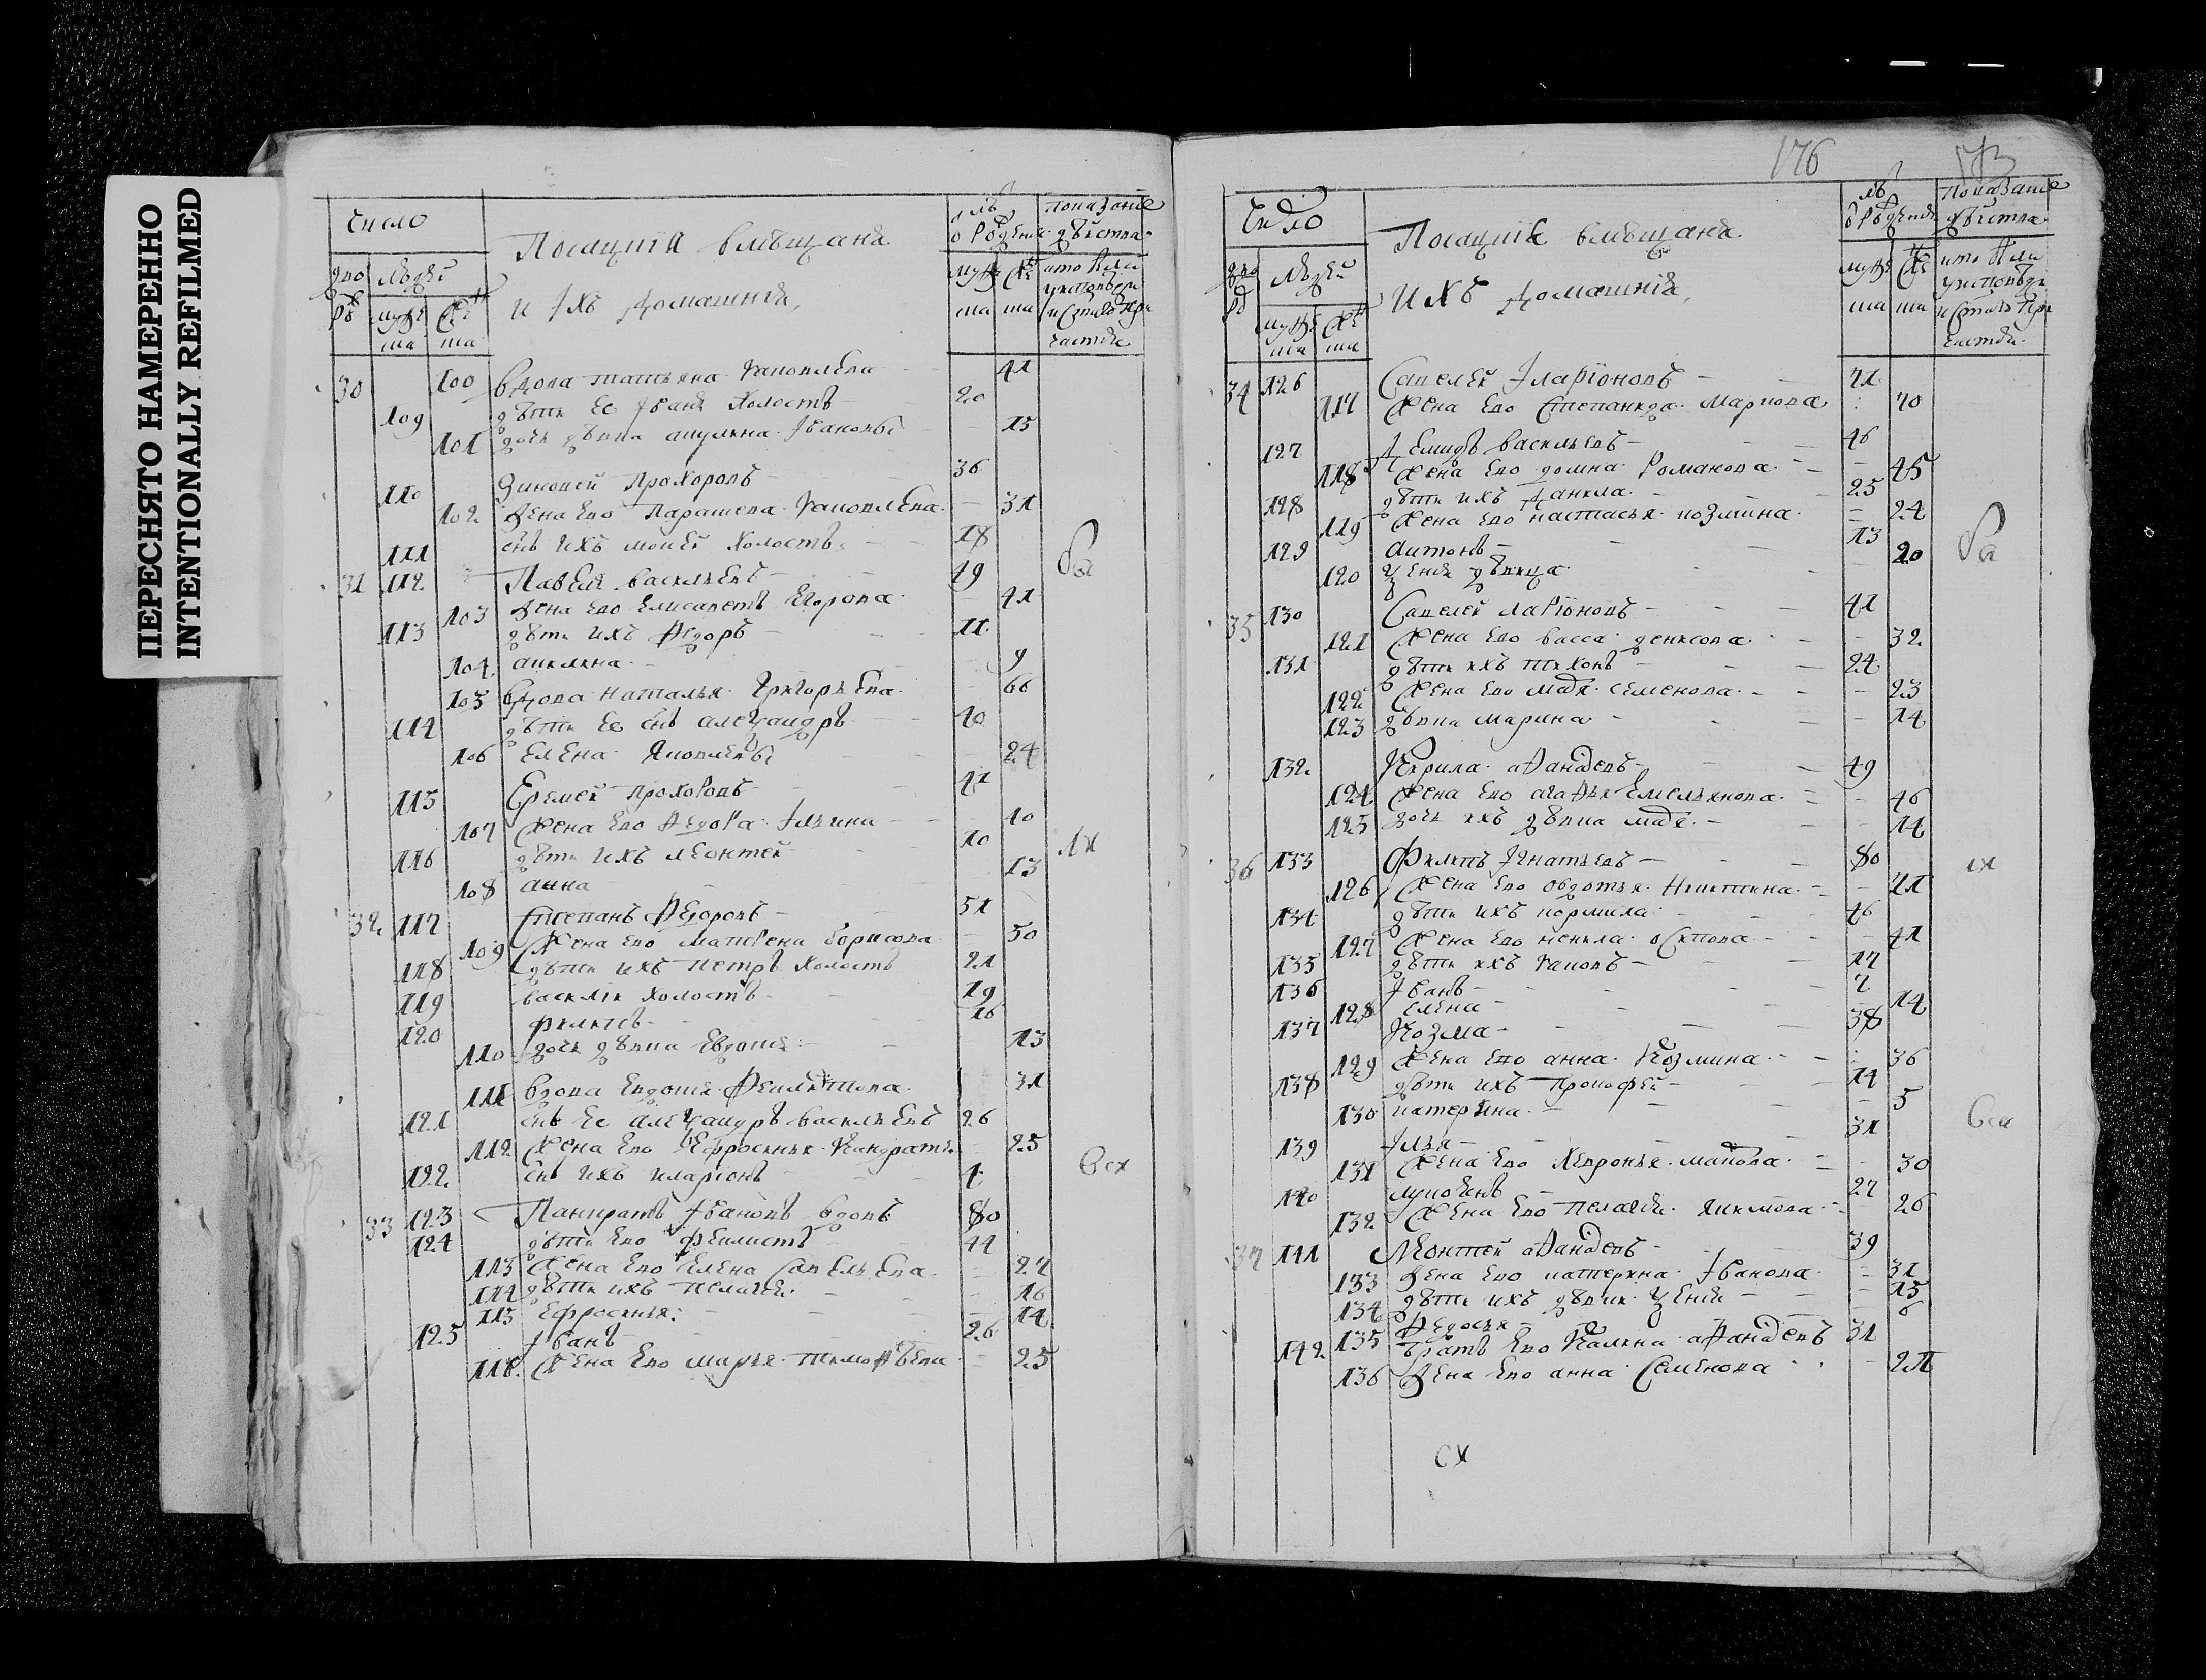 ПЕРЕСНЯТО НАМЕРЕННО
INTENTIONALLY REFILMED
Число
Посацкїя вмѣщаня
и Iхъ домашнїя
дво ровъ
людей
муже ска
жен ска
лѣ
о рожденїя
показание
действа
30 100 вдова татьяна Яковлева 41
109 дѣти ее Iванъ холостъ 20
101 дочь дѣвка акулина Iвановы 15
110 Зиновей Прохоровъ 36
102 жена ево Парасшева Яковлева 31
111 снъ ихъ моисей холостъ 18
31 112 Павелъ васильевъ 49
103 жена ево Елисаветъ Егорова 41
113 дѣти ихъ Ѳедоръ 11
104 акилина 9
105 вдова наталья Григорьева 66
114 дѣти ее снъ алеѯандръ 40
106 Елена Яковлевы 24
115 Еремей Прохоровъ 41
107 жена ево Ѳедора Iльина 40
116 дѣти ихъ леонтей 10
108 анна 13
32 117 Степанъ Ѳедоровъ 51
109 жена ево матрена борисова 50
118 дѣти ихъ петръ холостъ 21
119 василiи холостъ 19
120 филипъ 16
110 дочь дѣвка Евдотья 13
111 вдова Евдотья Филатова 31
121 снъ ее алеѯандръ васильевъ 26
112 жена ево Ефросинья Кондратье 25
122 снъ ихъ иларионъ 4
33 123 Панкратъ Iвановъ вдовъ 80
124 дѣти ево феилистъ 44
113 жена ево Елена Савельева 27
114 дѣти ихъ пелагея 16
115 Ефросинья 14
125 Iванъ 26
116 жена ево марья тимоѳѣева 25
176
Число
Посацкїя вмѣщаня
ихъ домашнїя
34 126 Савелей Iларїоновъ 71
117 жена ево Степанида Маркова 70
127 Демидъ васильевъ 46
118 жена ево домна Романова 45
128 дѣти ихъ данила 25
119 жена ево настасья козмина 24
129 антонъ 13
120 ѯения дѣвица 20
35 130 Савелей ларїоновъ 41
121 жена ево васса денисова 32
131 дѣти ихъ тихонъ 24
122 жена ево марья семенова 23
123 дѣвка марина 14
132 Кирила аѳанасевъ 49
124 жена ево агаѳья Емельянова 46
125 дочь ихъ дѣвка марья 14
36 133 Филипъ Iгнатьевъ 80
126 жена ево овдотья Никитина 71
134 дѣти ихъ кормила 46
127 жена ево некила осипова 41
135 дѣти ихъ яковъ 17
136 Iванъ 7
128 Елена 14
137 Козма 38
129 жена ево анна Козмина 36
138 дѣти ихъ прокофей 14
130 катерина 5
139 Iлья 31
131 жена ево Хевронья 30
140 лукоянъ 27
132 жена ево пелагея 26
37 141 Леонтей аѳанасевъ 39
133 жена ево катерина Iванова 31
134 дѣти ихъ дѣвки ѯения 15
135 Ѳедосья 6
142 братъ ево Калина аѳанасевъ 31
136 жена ево анна Семенова 21